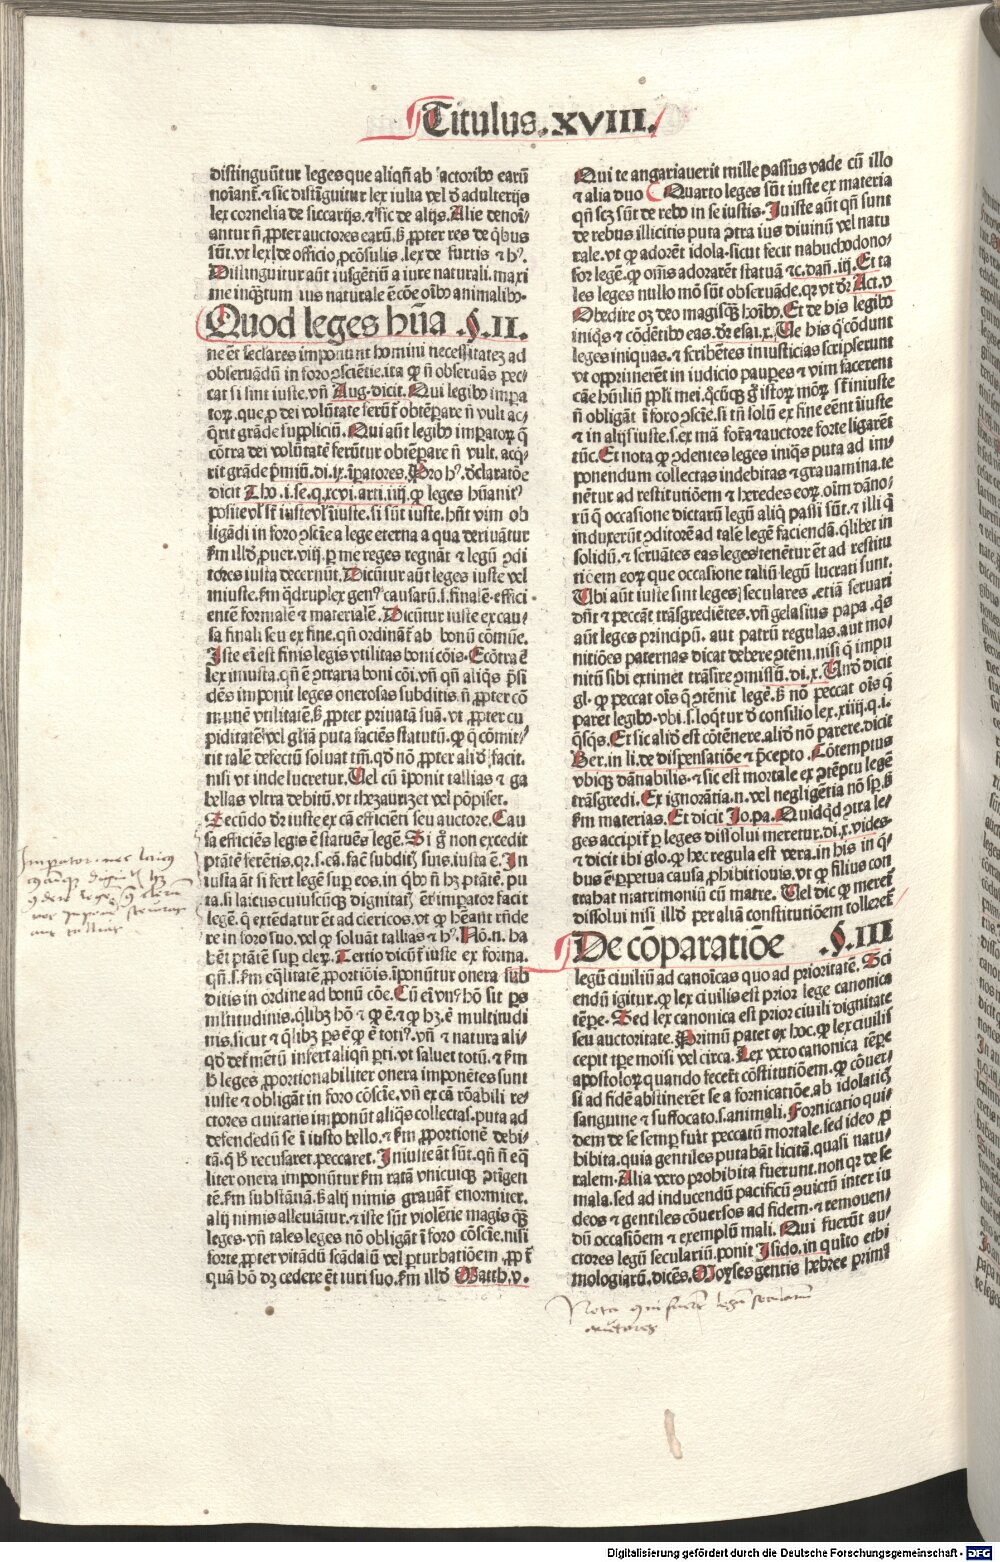 Titulus .XVIII.
distinguūtur leges que aliqñ ab actoribꝰ earū
noīant᷑. ⁊ sic distīguitur lex iulia vel ḋ adulterijs
lex cornelia de siccarijs, ⁊ sic de alijs. Alie denoī-
antur ñ ꝓpter auctores earū, ß ꝓpter res de qͥbus
sūt. vt lex de officio ꝓcōsulis. lex de furtis ⁊ hꝰ.
Distinguitur aūt iusgētiū a iure naturali. maxi
me inqͣtum ius naturale ē cōe oībꝰ animalibꝰ.
Quod leges hūa .§.II.
ne ēt seclares imponunt homini necessitatez ad
obseruādū in foro ↄsciētie. ita ꝙ ñ obseruās pec-
cat si sint iuste. vñ Aug. dicit. Qui legibꝰ impa
toꝝ. que ꝓ dei volūtate ferūt᷑ obtēpare ñ vult ac-
qͥrit grāde suppliciū. Qui aūt legibꝰ impatoꝝ q̄
cōtra dei volūtatē ferūtur obtēpare ñ vult. acqͥ-
rit grāde p̄miū. di. ix. īpatores. Pro hꝰ ḋclaratōe
dicit Tho. i. se. q. xcvi. arti. iiij. ꝙ leges hūanitꝰ
posite vl᷑ st̄ iuste vl᷑ īiuste. si sūt iuste. hn̄t vim ob
ligādi in foro ↄscīe a lege eterna a qua deriuātur
ẜm illḋ ꝓuer. viij. ꝑ me reges regnāt ⁊ legū ↄdi
tores iusta decernūt. Dicūtur aūt leges iuste vel
iniuste. ẜm qͣdruplex genꝰ causarū. s. finalē. effici
entē formalē ⁊ materialē. Dicūtur iuste ex cau-
sa finali seu ex fine. qñ ordināt᷑ ab bonū cōmūe.
Iste eī est finis legis vtilitas boni cōis. Ecōtra ē
lex iniusta. qñ ē ↄtraria boni cōi. vñ qñ aliqͥs p̄si
dēs imponit leges onerosas subditis. ñ ꝓpter cō
munē vtilitatē. ß ꝓpter priuatā suā. vt ꝓpter cu
piditatē vel gl̄iā puta faciēs statutū. ꝙ qͥ cōmit-
tit talē defectū soluat tm̄. qḋ nō ꝓpter aliḋ facit.
nisi vt inde lucretur. Uel cū īponit tallias ⁊ ga
bellas vltra debitū. vt thezaurizet vel pōpiset.
Secūdo ḋr iuste ex cā efficiēti seu auctore. Cau
sa efficiēs legis ē statuēs legē. Si g̊ non excedit
ptātē ferētis. qꝛ. s. cā. fac̄ subditꝭ suis. iusta ē. In
iusta āt si fert legē sup eos. in qͥbꝰ ñ hꝫ ptātē. pu
ta. si laicus cuiuscūqꝫ dignitatꝭ ēt impator facit
legē. q̄ extēdatur ēt ad clericos. vt ꝙ hēant rn̄de
re in foro suo. vel ꝙ soluāt tallias ⁊ hꝰ. Nō. n. ha
bēt ptātē sup cleꝝ. Tertio dicūt᷑ iuste ex forma.
qñ. s. ẜm eq̄litatē ꝓportiōis. īponūtur onera sub
ditis in ordine ad bonū cōe. Cū eī vnꝰ hō sit ps
multitudinis. qͥlibꝫ hō ⁊ ꝙ ē. ⁊ ꝙ hꝫ. ē multitudi
nis. sicut ⁊ qͥlibꝫ ps ē ꝙ ē totiꝰ. vñ ⁊ natura ali-
qḋ det᷑mētū infert aliqñ pti. vt saluet totū. ⁊ ẜm
ḣ leges ꝓportionabiliter onera imponētes sunt
iuste ⁊ obligāt in foro cōscīe. vñ ex cā rōabili re-
ctores ciuitatis imponūt aliqͣs collectas. puta ad
defendedū se ī iusto bello. ⁊ ẜm ꝓportionē debi-
tā. qͥ ḣ recusaret. peccaret. Iniuste āt sūt. qñ ñ eq̄
liter onera imponūtur ẜm ratā vnicuiqꝫ ↄtīgen
tē. ẜm substātiā. ß alij nimis grauāt᷑ enormiter.
alij nimis alleuiātur. ⁊ iste sūt violētie magis qͣꝫ
leges. vñ tales leges nō obligāt ī foro cōscīe. nisi
forte ꝓpter vitādū scādalū vel pturbatiōem. ꝓpt᷑
quā hō dꝫ cedere ēt iuri suo. ẜm illḋ Matth. v.
Qui te angariauerit mille passus vade cū illo
⁊ alia duo Quarto leges sūt iuste ex materia
qñ scꝫ sūt de rebꝰ in se iustis. Iniuste aūt qñ sunt
de rebus illicitis puta ↄtra ius diuinū vel natu
rale. vt ꝙ adorēt idola. sicut fecit nabuchodono-
sor legē. ꝙ om̄s adorarēt statuā ⁊c. dañ. iij. Et ta
les leges nullo mō sūt obseruāde. qꝛ vt ḋr Act. v
Obedire oꝫ deo magisqͣꝫ hoībꝰ. Et de his legibꝰ
iniqͥs ⁊ cōdētibꝰ eas. ḋr esai. x. Ue his qͥ cōdunt
leges iniquas. ⁊ scribētes iniusticias scripserunt
vt opprimerēt in iudicio paupes ⁊ vim facerent
cāe hūiliū ppl̄i mei. qͥcūqꝫ g̊ istoꝝ moꝝ st̄ iniuste
ñ obligāt ī foro ↄscīe. si tñ solū ex fine eēnt īiuste
⁊ in alijs iuste. s. ex mā forā ⁊ auctore forte ligarēt
tūc. Et nota ꝙ ↄdentes leges iniqͣs puta ad im-
ponendum collectas indebitas ⁊ grauamina. te
nētur ad restitutiōem ⁊ heredes eoꝝ. oīm dāno-
rū q̄ occasione dictarū legū aliqͥ passi sūt. ⁊ illi qͥ
induxerūt ↄditorē ad talē legē faciendā. qͥlibet in
solidū. ⁊ seruātes eas leges tenētur ēt ad restitu
tiōem eoꝝ que occasione taliū legū lucrati sunt.
Ubi aūt iuste sunt leges seculares. etiā seruari
dn̄t ⁊ peccāt trāsgrediētes. vñ gelasius papa. qͥs
aūt leges principū. aut patrū regulas. aut mo-
nitiōes paternas dicat debere ↄtēni. nisi qͥ impu
nitū sibi extimet trāsire ↄmissū. di. x. Unḋ dicit
gl. ꝙ peccat oīs qͥ ↄtēnit legē. ß nō peccat oīs qͥ
paret legibꝰ. vbi. s. loqͥtur ḋ consilio lex. xiiij. q. i.
qͥsqͥs. Et sic aliḋ est cōtēnere. aliḋ nō parere. dicit
Ber. in li. de dispensatiōe ⁊ p̄cepto. Cōtemptus
vbiqꝫ dānabilis. ⁊ sic est mortale ex ↄtēptu legē
trāsgredi. Ex ignorātia. n. vel negligētia nō sp. ß
ẜm materias. Et dicit Jo. pa. Quidqͥd ↄtra le-
ges accipit᷑ p leges dissolui meretur. di. x. vides.
⁊ dicit ibi glo. ꝙ hec regula est vera. in his in qͥ-
bus ē ppetua causa ꝓhibitiouis. vt ꝙ filius con
trahat matrimoniū cū matre. Uel dic ꝙ meret᷑
dissolui nisi illḋ per aliā constitutiōem tolleret᷑
De cōparatiōe .§.III
legū ciuiliū ad canoīcas quo ad prioritatē. Sci
endū igitur. ꝙ lex ciuilis est prior lege canonica
tēpe. Sed lex canonica est prior ciuili dignitate
seu auctoritate. Primū patet ex hoc. ꝙ lex ciuilis
cepit tpe moisi vel circa. Lex vero canonica tēpe
apostoloꝝ quando fecerūt cōstitutiōem. ꝙ cōuer-
si ad fidē abstinerēt se a fornicatiōe. ab idolatꝭ
sanguine ⁊ suffocato. s. animali. Fornicatio qui-
dem de se semp fuit peccatū mortale. sed ideo ꝓ
hibita. quia gentiles putabāt licitā. quasi natu-
ralem. Alia vero prohibita fuerunt. non qꝛ de se
mala. sed ad inducendū pacificū ↄuictū inter iu
deos ⁊ gentiles cōuersos ad fidem. ⁊ remouen-
dū occasiōem ⁊ exemplū mali. Qui fuerūt au-
ctores legū seculariū. ponit Isido. in quīto ethi
mologiarū. dicēs. Moyses gentis hebree primꝰ
Nota qui fuerūt legū seculariū
auctores